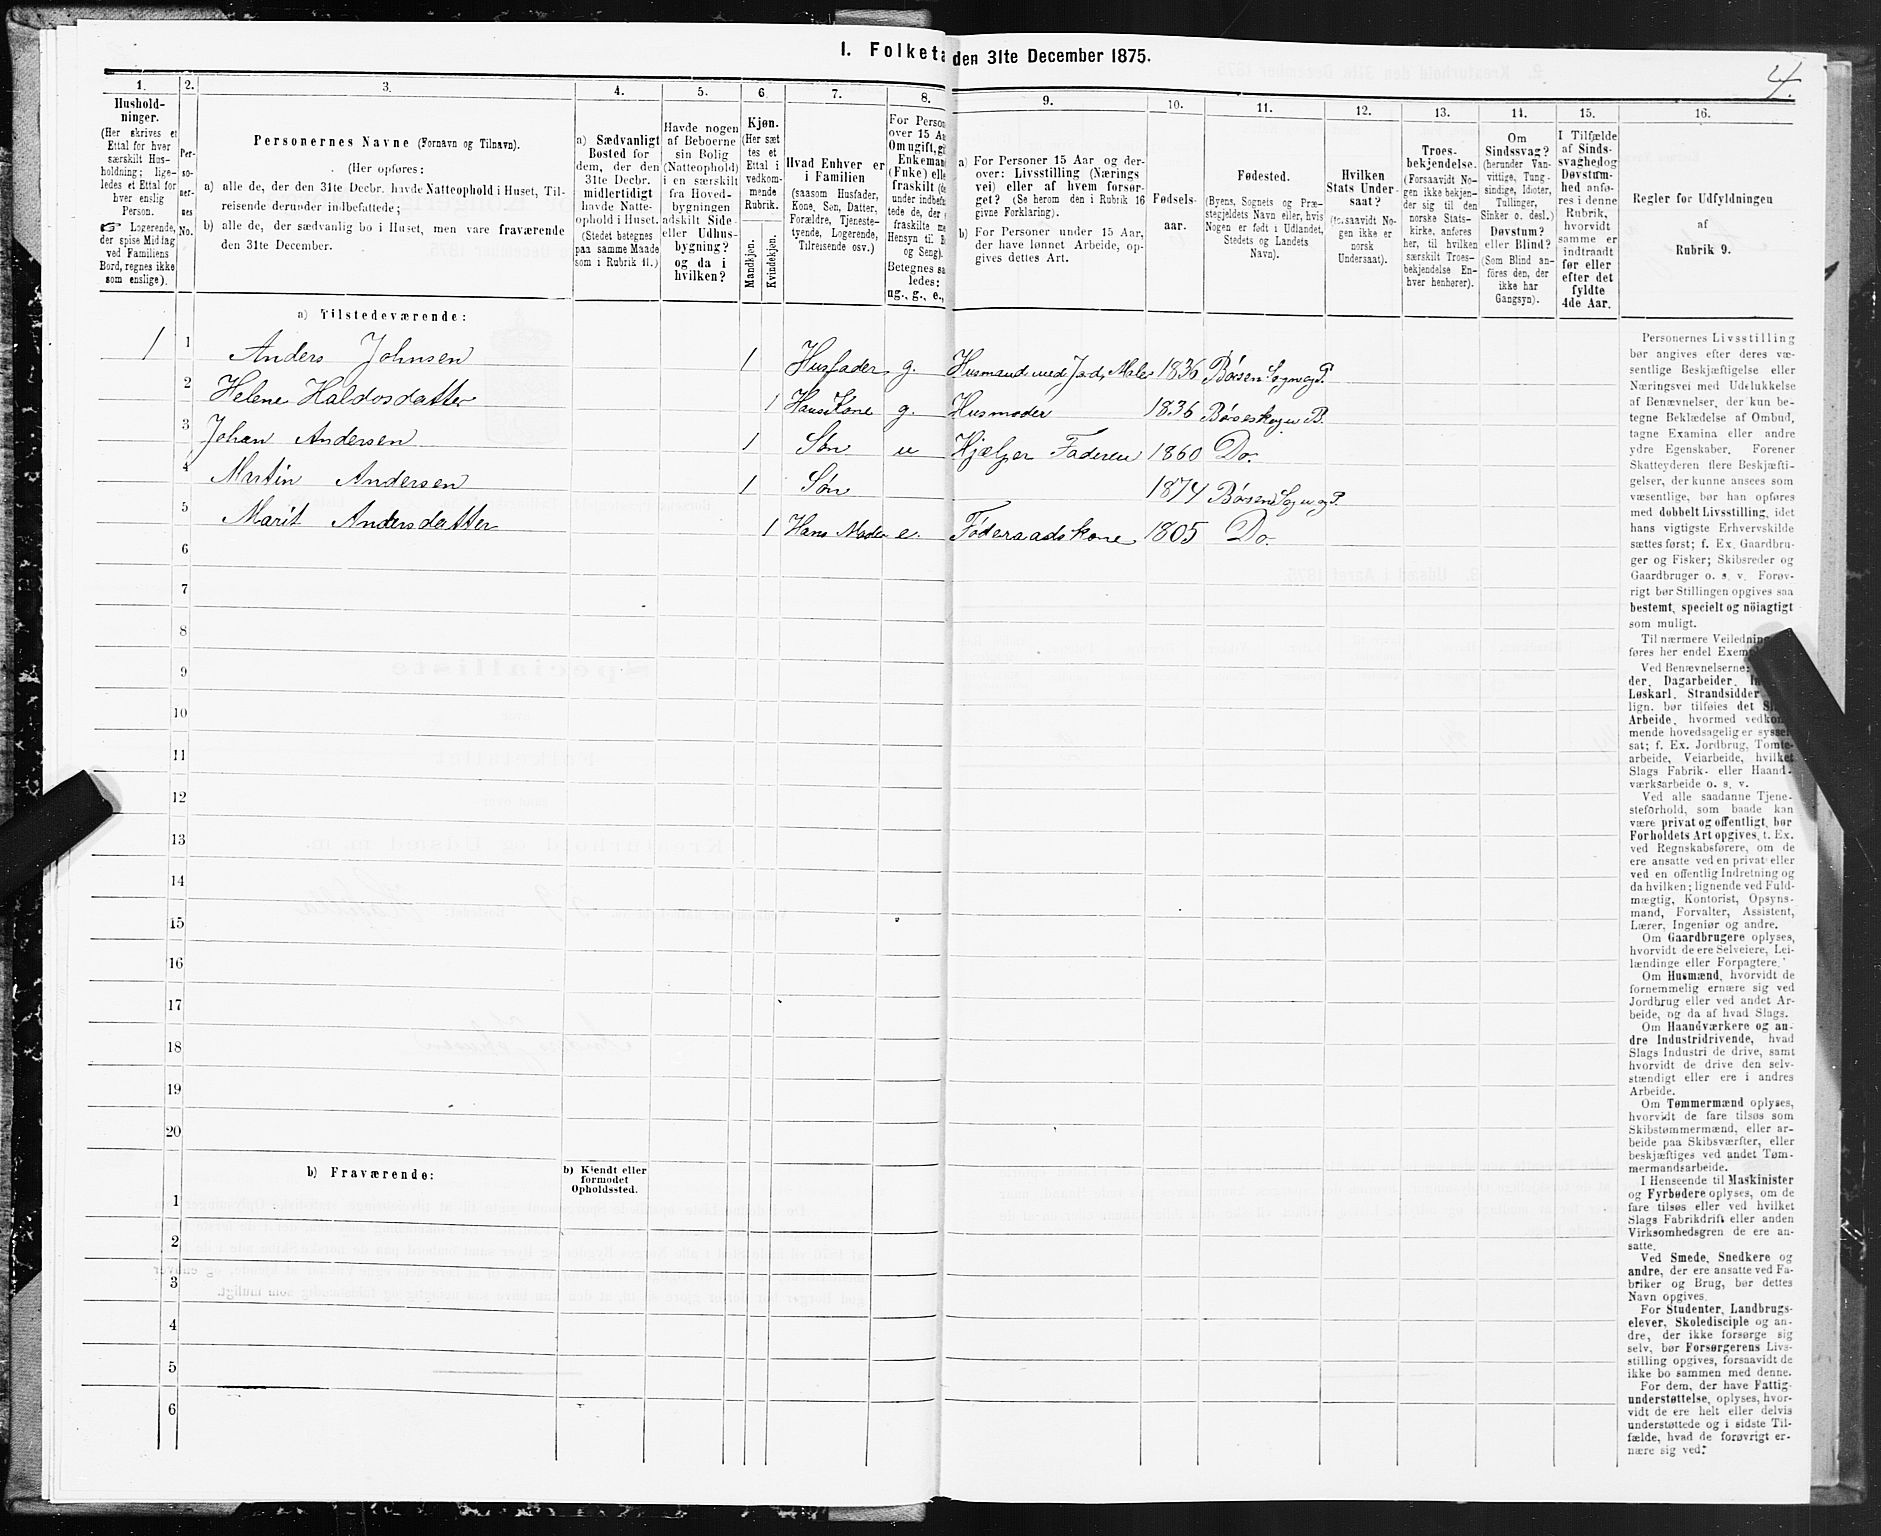 I. Folketa den 31te December 1875.
4.
1.
Hushold-
ninger.
(Her skrives et
Ettal for hver
særskilt Hus-
holdning; lige-
ledes et Ettal for
hver enslig
Person.
Logerende,
der spise Middag
ved Familiens
Bord, regnes ikke
som enslige).
2.
Per-
so-
ner-
nes
No.
3.
Personernes Navne (Fornavn og Tilnavn).
(Her opføres:
a) alle de, der den 31te Decbr. havde Natteophold i Huset, Til-
reisende derunder indbefattede;
b) alle de, der sædvanlig bo i Huset, men vare fraværende
den 31te December.
4.
a) Sædvanligt
Bosted for
dem, der den
31te Decbr.
midlertidigt
havde Natte-
ophold i Huset.
(Stedet betegnes
paa samme Maade
som i Rubrik 11.)
5.
Havde nogen
af Beboerne
sin Bolig
(Natteophold)
i en særskilt
fra Hoved-
bygningen
adskilt Side-
eller Udhus-
bygning?
og da i
hvilken?
6.
Kjøn.
(Her sæt-
tes et
Ettal i
vedkom-
mende
Rubrik.
Mandkjøn.
Kvindekjøn.
7.
Hvad Enhver er
i Familien
(saasom Husfader,
Kone, Søn, Datter,
Forældre, Tjeneste-
tyende, Logerende,
Tilreisende osv.)
8.
For Person
over 15 Aa
Om ugift, gi
Enkemand
(Enke) elle
fraskilt
under indbefat-
tede de, der
fraskilte m
Hensyn til B
og Seng).
Betegnes sa
ledes:
ug., g., e.,
9.
a) For Personer 15 Aar og der-
over: Livsstilling (Nærings
vei) eller af hvem forsør-
get? (Se herom den i Rubrik 16
givne Forklaring).
b) For Personer under 15 Aar,
der have lønnet Arbeide, op-
gives dettes Art.
10.
Fødsels-
aar.
11.
Fødested.
(Byens, Sognets og Præ-
stegjeldets Navn eller, hvis
Nogen er født i Udlandet,
Stedets og Landets
Navn).
12.
Hvilken
Stats Under-
saat?
(forsaavidt No-
gen ikke er
norsk
Undersaat).
13.
Troes-
bekjendelse.
(Forsaavidt No-
gen ikke bekjen-
der sig til den
norske Stats-
kirke, anføres
her, til hvilken
særskilt Troes-
bekjendelse En-
hver henhører).
14.
Om
Sindssvag?
(herunder Van-
vittige, Tung-
sindige, Idioter,
Tullinger,
Sinker o. desl.)
Døvstum?
eller Blind?
(Som Blind an-
føres den, der
ikke har
Gangsyn).
15.
I Tilfælde
af Sinds-
svaghed og
Døvstum-
hed anfø-
res i denne
Rubrik,
hvorvidt
samme er
indtraadt
før eller
efter det
fyldte
4de Aar.
16.
Regler for Udfyldningen
af
Rubrik 9.
a) Tilstedeværende:
1 1 Anders Johnsen 1 Husfader g. Husmand med Jord, Maler 1836 Børsen Sogn og P.
2 Helene Haldosdatter 1 Hans Kone g. Husmoder 1836 Børseskogn P.
3 Johan Andersen 1 Søn u Hjælper Faderen 1860 Do.
4 Martin Andersen 1 Søn 1874 Børsen Sogn og P.
5 Marit Andersdatter 1 Hans Moder e. Føderaadskone 1805 Do.
6
7
8
9
10
11
12
13
14
15
16
17
18
19
20
b) Fraværende:
b) Kjendt eller
formodet
Opholdssted.
1
2
3
4
5
6
Personernes Livsstilling
bør angives efter deres væ-
sentlige Beskjæftigelse eller
Næringsvei med Udelukkelse
af Benævnelser, der kun be-
tegne Beklædelse af Ombud,
tagne Examina eller andre
ydre Egenskaber. Forener
Skatteyderen flere Beskjæfti-
gelser, der kunne ansees som
væsentlige, bør han opføres
med dobbelt Livsstilling, idet
hans vigtigste Erhvervskilde
sættes først; f. Ex. Gaardbru-
ger og Fisker; Skibsreder og
Gaardbruger o. s. v. Forøv-
rigt bør Stillingen opgives saa
bestemt, specielt og nöiagtigt
som muligt.
Til nærmere Veiledning
føres her endel Exem
Ved Benævnelserne:
der, Dagarbeider,
Løskarl, Strandsidder
lign. bør tilføies det
Arbeide, hvormed vedkom-
mende hovedsagelig er syssel-
sat; f. Ex. Jordbrug, Tomte-
arbeide, Veiarbeide, hvilket
Slags Fabrik- eller Haand-
værksarbeide o. s. v.
Ved alle saadanne Tjene-
steforhold, som baade kan
være privat og offentligt, bør
Forholdets Art opgives, t. Ex.
ved Regnskabsførere, om de
ere ansatte ved en privat eller
ved en offentlig Indretning og
da hvilken; lignende ved Fuld-
mægtig, Kontorist, Opsyns-
mand, Forvalter, Assistent,
Lærer, Ingeniør og andre.
Om Gaardbrugere oplyses,
hvorvidt de ere Selveiere, Lei-
lændinge eller Forpagtere.
Om Husmænd, hvorvidt de
fornemmelig ernære sig ved
Jordbrug eller ved andet Ar-
beide, og da af hvad Slags.
Om Haandværkere og an-
dre Industridrivende, hvad
Slags Industri de drive, samt
hvorvidt de drive den selv-
stændigt eller ere i andres
Arbeide.
Om Tømmermænd oplyses,
hvorvidt de fare tilsøs som
Skibstømmermænd, eller ar-
beide paa Skibsværfter, eller
beskjæftiges ved andet Tøm-
mermandsarbeide.
I Henseende til Maskinister
og Fyrbødere oplyses, om de
fare tilsøs eller ved hvilket
Slags Fabrikdrift eller anden
Virksomhedsgren de ere an-
satte.
Ved Smede, Snedkere og
andre, der ere ansatte ved Fa-
briker og Brug, bør dettes
Navn opgives.
For Studenter, Landbrugs-
elever, Skoledisciple og an-
dre, der ikke forsørge sig
selv, bør Forsørgerens Livs-
stilling opgives, forsaavidt de
ikke bo sammen med denne.
For dem, der have Fattig-
understøttelse, oplyses, hvor-
vidt de ere helt eller delvis
understøttede og i sidste Til-
fælde, hvad de forøvrigt er-
nære sig ved.